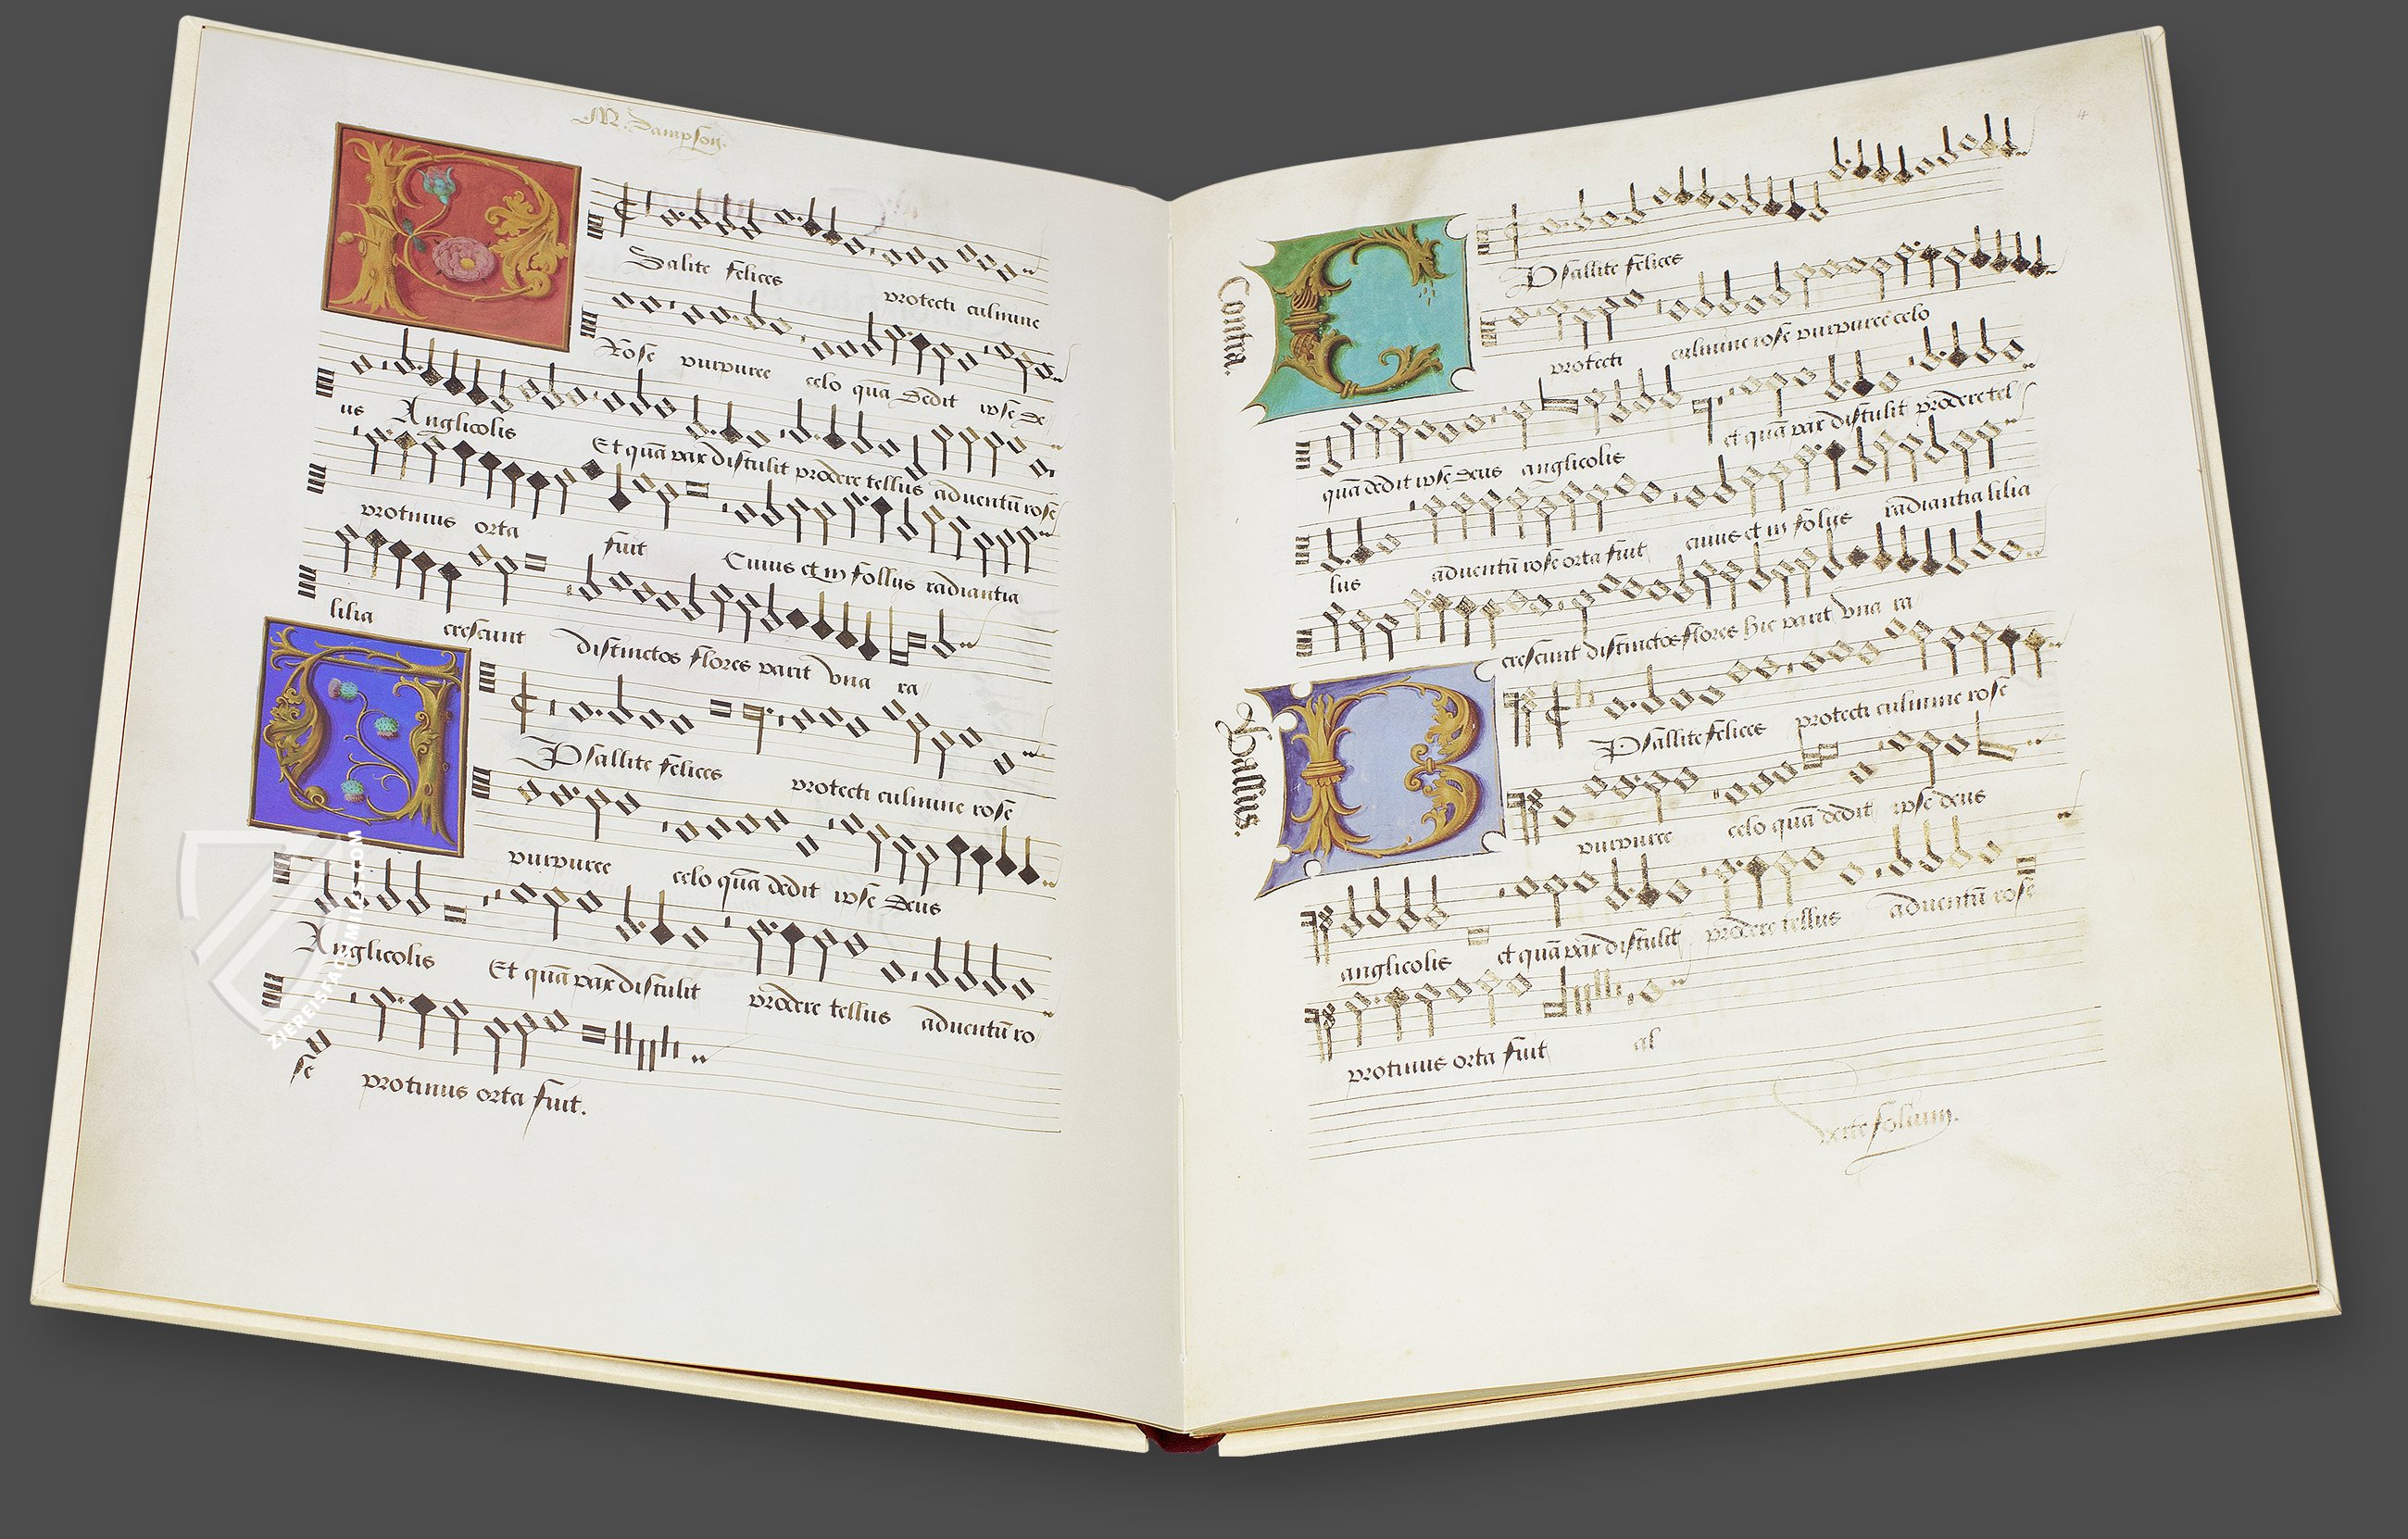 M. Sampson.
PSalite felices protecti culmine
Rose purpuree celo quā dedit ipse de
us Anglicolis Et quā par distulit prodere tellus adventū rose
protinus orta fuit Cuius et in follus radiantia
lilia crescunt distinctos flores parit vna ra
Psallite felices protecti culmine rose
purpuree celo quā dedit ipse deus
Anglicolis Et quā par distulit prodere tellus adventū ro
se protinus orta fuit.
ZIEREISFACSIMILES.COM
4
Contra.
C
Psallite felices
protecti culmine rose purpuree celo
quā dedit ipse deus anglicolis et quā par distulit prodere tel
lus adventū rose orta fuit cuius et in folijs radiantia lilia
crescunt distinctos flores hic parit vna ra
Bassus.
B
Psallite felices protecti culmine rose
purpuree celo quā dedit ipse deus
anglicolis et quā par distulit prodere tellus adventū rose
protinus orta fuit al
verte folium.